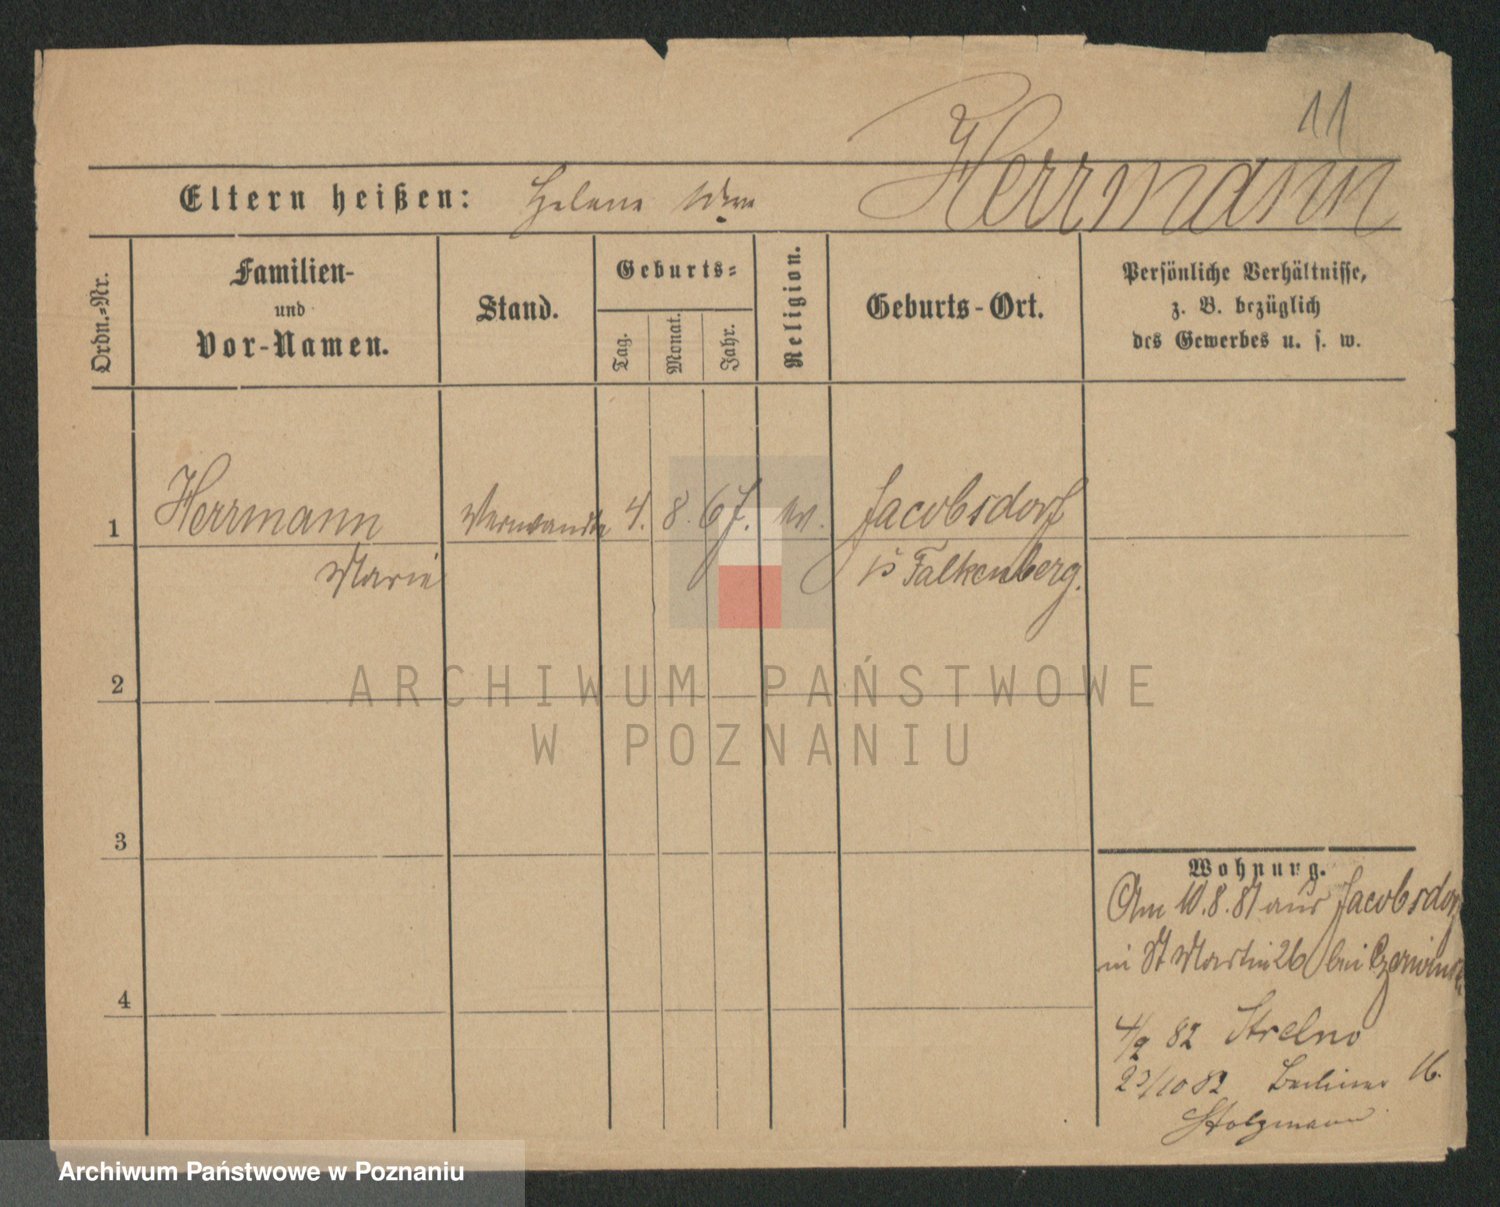 11
Herrmann
Eltern heißen: Helene
Ordn.-Nr.
Familien-
und
Vor-Namen.
Stand.
Geburts-
Tag.
Monat.
Jahr.
Religion.
Geburts-Ort.
Persönliche Verhältnisse,
z. B. bezüglich
des Gewerbes u. s. w.
1 Herrmann Verwandte 4. 8. 67. ev. Jacobsdorf
Marie Falkenberg.
2
ARCHIWUM PAŃSTWOWE
W POZNANIU
3
Wohnung.
Am 10.8.81 aus Jacobsdorf
in St Martin 26 bei
4
4/9 82 Strelno
/10 82 Berliner 16.
Stolzmann
Archiwum Państwowe w Poznaniu